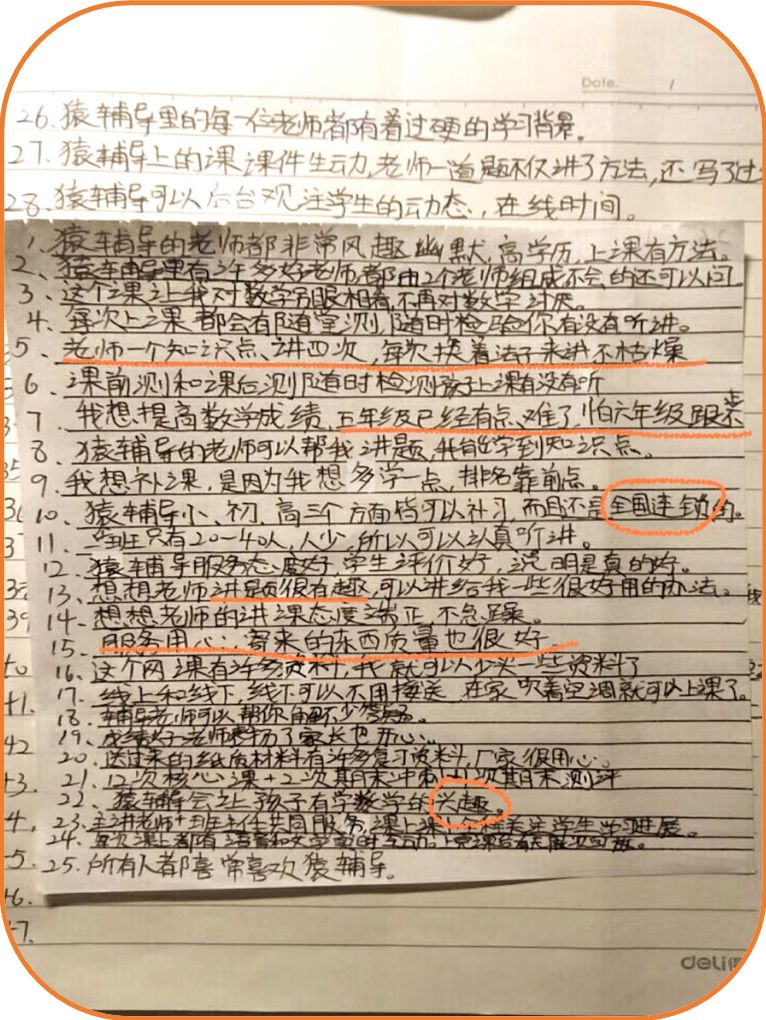 Date. /
26、猿辅导里的每一位老师都有着过硬的学习背景。
27、猿辅导上的课课件生动,老师一道题不仅讲了方法,还写了过
28、猿辅导可以后台观注学生的动态,在线时间。
1、猿辅导的老师都非常风趣幽默,高学历,上课有方法。
2、猿辅导里有许多好老师,都由2个老师组成不会的还可以问。
3、这个课让我对数学另眼相看,不再对数学讨厌。
4、每次上课都会有随堂测,随时检验你有没有听讲。
5、老师一个知识点、讲四次,每次换着法子来讲不枯燥
6、课前测和课后测随时检测孩子上课有没有听
7、我想提高数学成绩,五年级已经有点难了,怕六年级跟
8、猿辅导的老师可以帮我讲题,我能学到知识点。
9、我想补课,是因为我想多学一点,排名靠前点。
10、猿辅导小、初、高三个方面皆可以补习,而且还是全国连锁的。
11、一班只有20-40人,人少,所以可以认真听讲。
12、猿辅导服务态度好,学生评价好,说明是真的好。
13、想想老师讲题很有趣,可以讲给我一些很好用的办法。
14、想想老师的讲课态度端正,不急躁。
15、服务用心,寄来的东西质量也很好
16、这个网课有许多资料,我就可以少买一些资料了
17、线上和线下,线下可以不用接送,在家吹着空调就可以上课了。
18、辅导老师可以帮你解不少答疑。
19、成绩好老师表扬了家长也开心。
20、送过来的纸质材料有许多复习资料,厂家很用心。
21、12次核心课+2次期末冲刺+1次期末测评
22、猿辅导会让孩子有学数学的兴趣。
23、主讲老师+班主任共同服务,课上课下关注学生学习进展。
24、每次课上都有语音和文字
25、所有人都喜常喜欢猿辅导。
deli